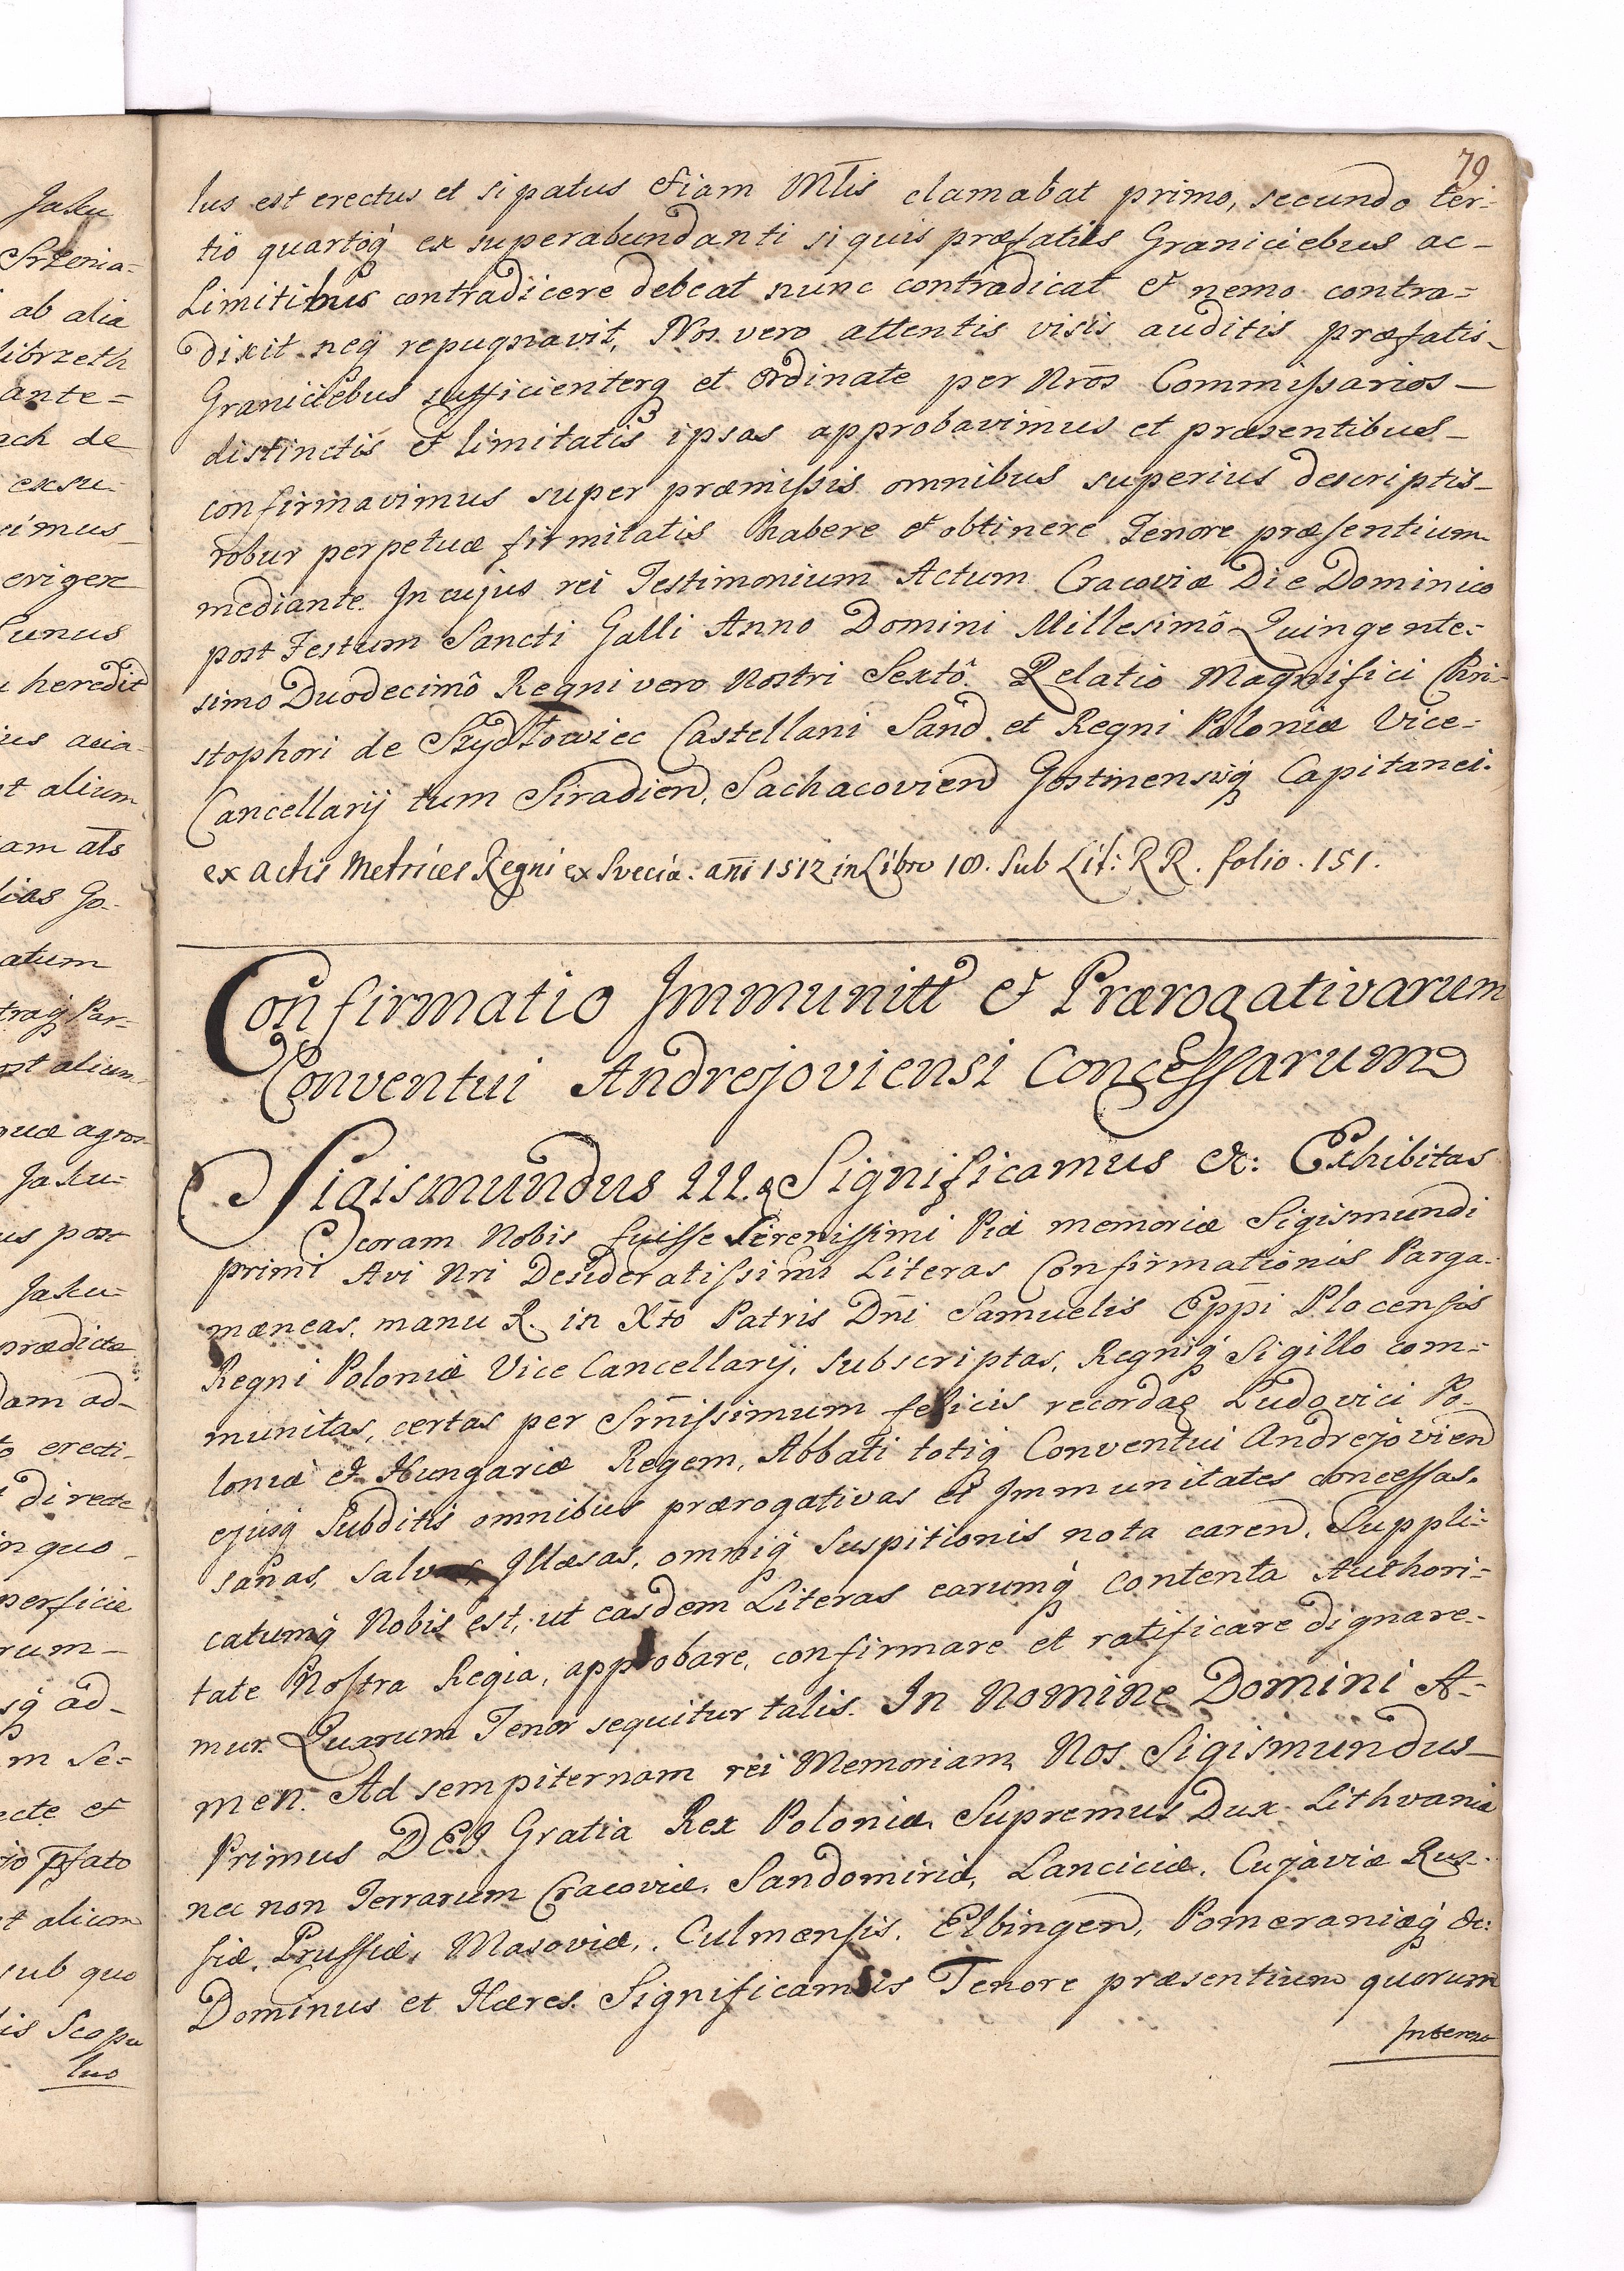 79
lus est erectus et sipatus Etiam Mltis clamabat primo, secundo ter-
tio quartoq́ ex superabundanti si quis præfatis Graniciebus ac-
Limitibus contradicere debeat nunc contradicat et nemo contra=
dixit neq́ repugnavit, Nos vero attentis visis auditis præfatis-
Graniciebus sufficienterq et ordinate per Nrōs Commissarios-
distinctis et limitatis ipsas approbavimus et præsentibus-
confirmavimus super præmissis omnibus superius descriptis-
robur perpetuæ firmitatis habere et obtinere Tenore præsentium
mediante. In cujus rei Testimonium Actum Cracoviæ Die Dominico
post Festum Sancti Galli Anno Domini Millesimô Quingente=
simo Duodecimô Regni vero Nostri Sextô. Relatio Magnifici Chri-
stophori de Szydłowiec Castellani Sand. et Regni Poloniæ Vice-
Cancellarij tum Siradien, Sachacovien Gostinensisq́ Capitanei.
ex actis Metrices Regni ex Svecia. añi 1512 in Libro 10. Sub Lit: RR. folio. 151.
Confirmatio Immunitt et Prærogativarum
Conventui Andrejoviensi Concessarum
Sigismundus III. Significamus &: Exhibitas
coram Nobis fuisse Serenissimi Piæ memoriæ Sigismundi
primi Avi Nri Desideratissimi Literas Confirmationis Parga-
mæneas, manu R. in Xto Patris Dñi Samuelis Eppi Plocensis
Regni Poloniæ Vice Cancellarij, subscriptas, Regniq́ Sigillo com=
munitas, certas per Srñissimum felicis recordaę Ludovici Po-
loniæ et Hungariæ Regem, Abbati totiq Conventui Andrejovien
ejusq́ Subditis omnibus prærogativas et Immunitates concessas.
sanas, salvas, Illæsas, omniq́ suspitionis nota caren. Suppli=
catumq́ Nobis est, ut easdem Literas earumq́ contenta Authori=
tate Nostra Regia, approbare, confirmare et ratificare dignare-
mur. Quarum Tenor sequitur talis. In Nomine Domini A-
men. Ad sempiternam rei Memoriam Nos Sigismundus-
Primus DEI Gratia Rex Poloniæ, Supremus Dux Lithvaniæ
nec non Terrarum Cracoviæ, Sandomiriæ, Lanciciæ, Cujaviæ Rus-
siæ, Prussiæ, Masoviæ, Culmensis, Elbingen, Pomeraniæq́ &c:
Dominus et Hæres. Significamus Tenore præsentium quorum
Interest